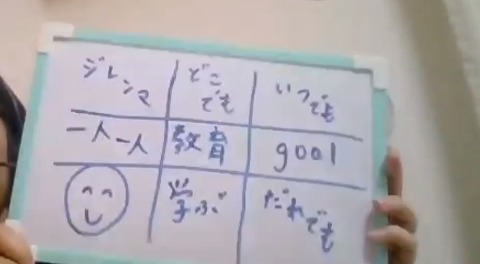 ジレンマ
どこでも
いつでも
一人一人
教育
gool
学ぶ
だれでも